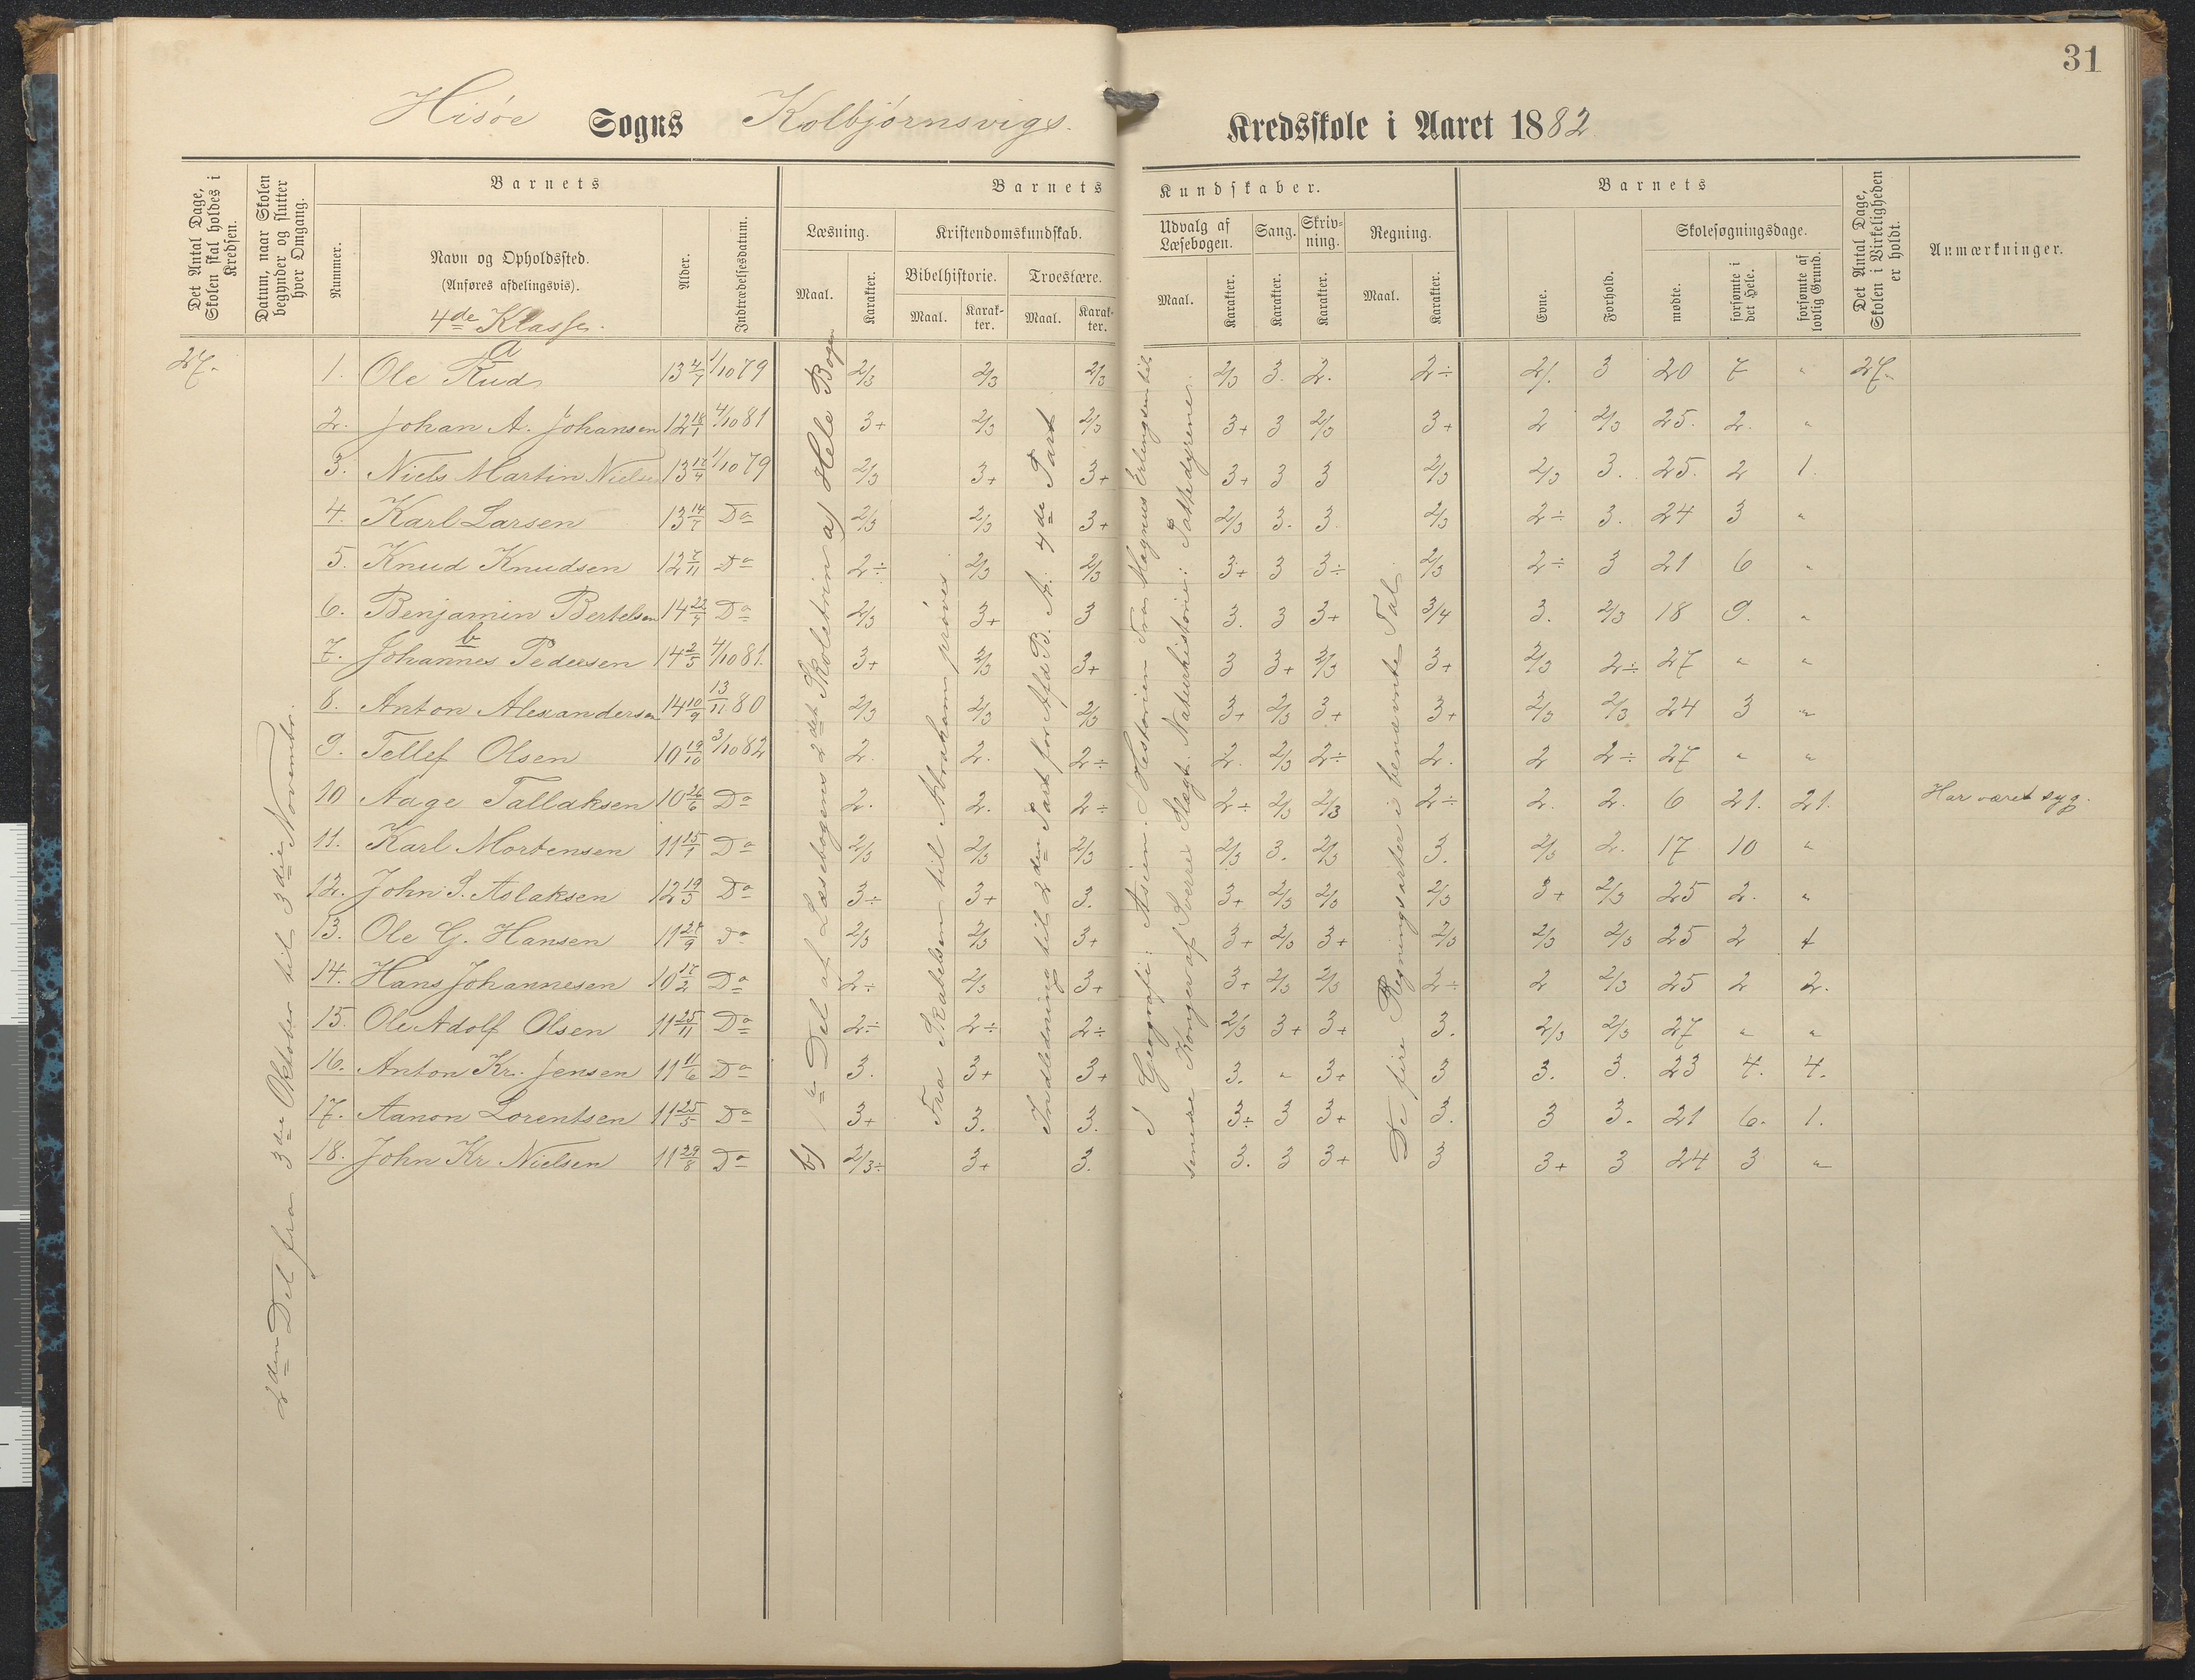 31
Hisøe Sogns Kolbjørnsvigs. Kredsskole i Aaret 1882
Det Antal Dage, Skolen skal holdes i Kredsen.
Datum, naar Skolen begynder og slutter hver Omgang.
Barnets
Nummer.
Navn og Opholdssted.
(Anføres afdelingsvis).
4de Klasse.
Alder.
Indtrædelsesdatum.
Barnets Kundskaber.
Læsning.
Maal. Karakter.
Kristendomskundskab.
Bibelhistorie. Troeslære.
Maal. Karakter. Maal. Karakter.
Udvalg af Læsebogen. Sang. Skrivning. Regning.
Maal. Karakter. Karakter. Karakter. Maal. Karakter.
Barnets
Evne. Forhold.
Skolesøgningsdage.
mødte. forsømte i det Hele. forsømte af lovlig Grund.
Det Antal Dage, Skolen i Virkeligheden er holdt.
Anmærkninger.
27.
2den Del fra 3die Oktober til 3die Novembr.
a
1. Ole Rud 13 4/7 1/10 79 2/3 2/3 2/3 2/3 3. 2. 2÷ 2/. 3 20 7 " 27.
2. Johan A. Johansen 12 18/1 4/10 81 3+ 2/3 2/3 3+ 3 2/3 3+ 2 2/3 25. 2. "
3. Niels Martin Nielsen 13 17/4 1/10 79 2/3 3+ 3+ 3+ 3 3 2/3 2/3 3. 25. 2 1.
4. Karl Larsen 13 14/7 Do 2/3 2/3 3+ 2/3 3. 3. 2/3 2÷ 3. 24 3 "
5. Knud Knudsen 12 7/11 Do 2÷ 2/3 2/3 3+ 3 3÷ 2/3 2÷ 3 21 6 "
6. Benjamin Bertelsen 14 22/4 Do 2/3 3+ 3 3. 3 3+ 3/4 3. 2/3 18 9. "
b
7. Johannes Pedersen 14 2/5 4/10 81. 3+ 2/3 3+ 3 3+ 2/3 3+ 2/3 2÷ 27 " "
8. Anton Alexandersen 14 10/9 13/11 80 2/3 2/3 2/3 3+ 2/3 3+ 3+ 2/3 2/3 24 3 "
9. Tellef Olsen 10 19/10 3/10 82 2. 2. 2÷ 2. 2/3 2÷ 2. 2 2÷ 27 " "
10 Aage Tallaksen 10 26/6 Do 2. 2. 2÷ 2÷ 2/3 2/3 2÷ 2. 2. 6 21. 21. Har været syg.
11. Karl Mortensen 11 15/1 Do 2/3 2/3 2/3 2/3 3. 2/3 3. 2/3 2. 17 10 "
12. John S. Aslaksen 12 19/3 Do 3÷ 3+ 3. 3+ 2/3 2/3 2/3 3+ 2/3 25 2. "
13. Ole G. Hansen 11 27/9 Do 2/3 2/3 3+ 3+ 2/3 3+ 2/3 2/3 2/3 25 2 1
14. Hans Johannesen 10 17/2 Do 2÷ 2/3 3+ 3+ 2/3 2/3 2÷ 2 2/3 25 2 2.
15. Ole Adolf Olsen 11 25/11 Do 2÷ 2÷ 2÷ 2/3 3+ 3+ 3. 2/3 2/3 27 " "
16. Anton Kr. Jensen 11 11/6 Do 3. 3+ 3+ 3. " 3+ 3 3. 3. 23 4. 4.
17. Aanon Lorentsen 11 25/5 Do 3+ 3. 3. 3÷ 3 3+ 3. 3 3. 21 6. 1.
18. John Kr Nielsen 11 29/8 Do 2/3÷ 3+ 3. 3. 3 3+ 3 3+ 3 24 3 "
b) 1e Del af Læsebogens 2det Skoletrin a) Hele Bogen
Fra Skabelsen til Abraham prøves.
Indledning til 2den Part for Afd B. A. 4de Part.
I Geografi: Asien. I Historien Fra Magnus Erlingsen til
senere Konger af Sverre Slægt. Naturhistorie: Pattedyrene.
De fire Regningsarter i benævnte Tal.